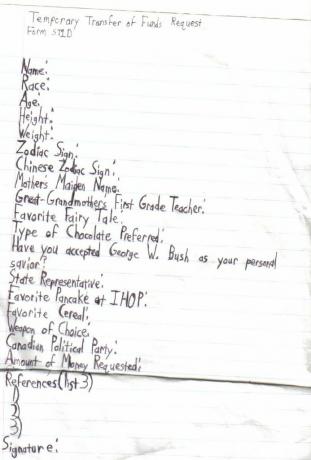 Temporary Transfer of Funds Request
Form 521D
Name:
Race:
Age:
Height:
Weight:
Zodiac Sign:
Chinese Zodiac Sign:
Mother's Maiden Name:
Great-Grandmother's First Grade Teacher:
Favorite Fairy Tale:
Type of Chocolate Preferred:
Have you accepted George W. Bush as your personal
savior?
State Representative:
Favorite Pancake at IHOP:
Favorite Cereal:
Weapon of Choice:
Canadian Political Party:
Amount of Money Requested:
References (list 3)
1)
2)
3)
Signature: